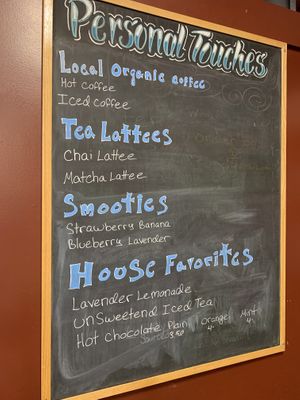 Personal Touches
Local Organic coffee
Hot Coffee
Iced Coffee
Tea Lattees
Chai Lattee
Matcha Lattee
Smooties
Strawberry Banana
Blueberry Lavender
House Favorites
Lavender Lemonade
Unsweetend Iced Tea
Hot Chocolate Plain Orange Mint
3.50 4- 4-